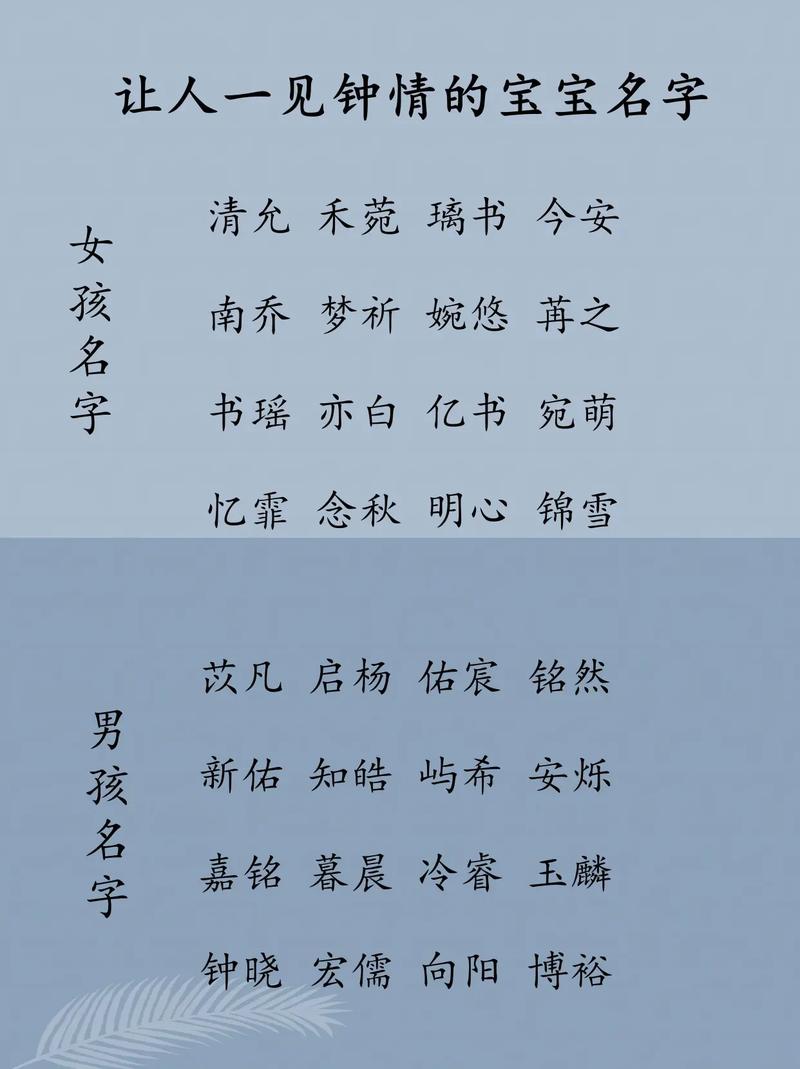 让人一见钟情的宝宝名字
女孩名字
清允 禾菀 璃书 今安
南乔 梦祈 婉悠 苒之
书瑶 亦白 亿书 宛萌
忆霏 念秋 明心 锦雪
男孩名字
苡凡 启杨 佑宸 铭然
新佑 知皓 屿希 安烁
嘉铭 暮晨 冷睿 玉麟
钟晓 宏儒 向阳 博裕